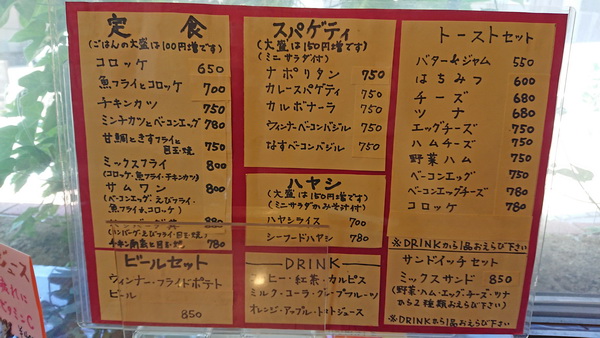 定食
(ごはんの大盛は100円増です)
コロッケ 650
魚フライとコロッケ 700
チキンカツ 750
ミンチカツとベーコンエッグ 780
甘鯛ときすフライと
目玉焼 750
ミックスフライ 800
(コロッケ、魚フライ・チキンカツ)
サムワン 800
(ベーコンエッグ、えびフライ・
魚フライ、コロッケ)
880
(ハンバーグ・えびフライ・目玉焼)
780
ビールセット
ウィンナー・フライドポテト
ビール
850
スパゲティ
(大盛は150円増です)
(ミニサラダ付)
ナポリタン 750
カレースパゲティ 750
カルボナーラ 750
ウィンナーベーコンバジル 750
なすベーコンバジル 750
ハヤシ
(大盛は150円増です)
(ミニサラダかみそ汁付)
ハヤシライス 700
シーフードハヤシ 780
DRINK
ヒー・紅茶・カルピス
ミルク・コーラ・グレープフルーツ
オレンジ・アップル・トマトジュース
トーストセット
バター&ジャム 550
はちみつ 600
チーズ 680
ツナ 680
エッグチーズ 750
ハムチーズ 750
野菜ハム 750
ベーコンエッグ 750
ベーコンエッグチーズ 780
コロッケ 780
※DRINKから1品おえらび下さい
サンドイッチセット
ミックスサンド 850
(野菜・ハム・エッグ・チーズ・ツナ
から2種類おえらび下さい)
※DRINKから1品おえらび下さい